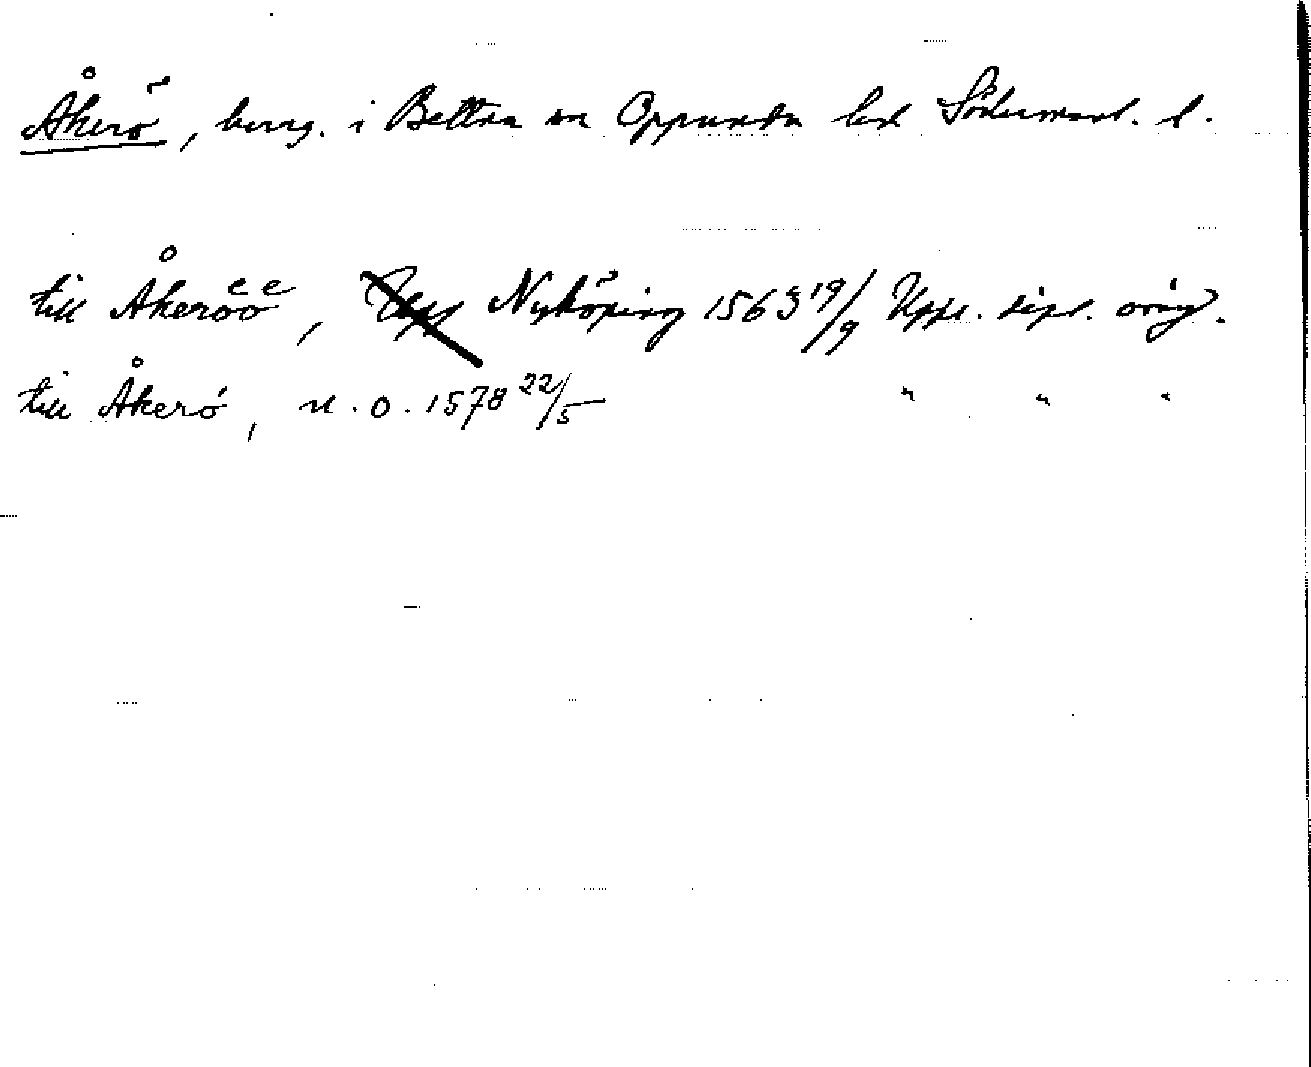 Åkerö, herrg. i Bettna sn Oppunda hd Södermanl. l.
till Åkeröö, Nyköping 1563 19/9 Uppl. dipl. orig.
till Åkerö, u. o. 1578 22/5 " " "